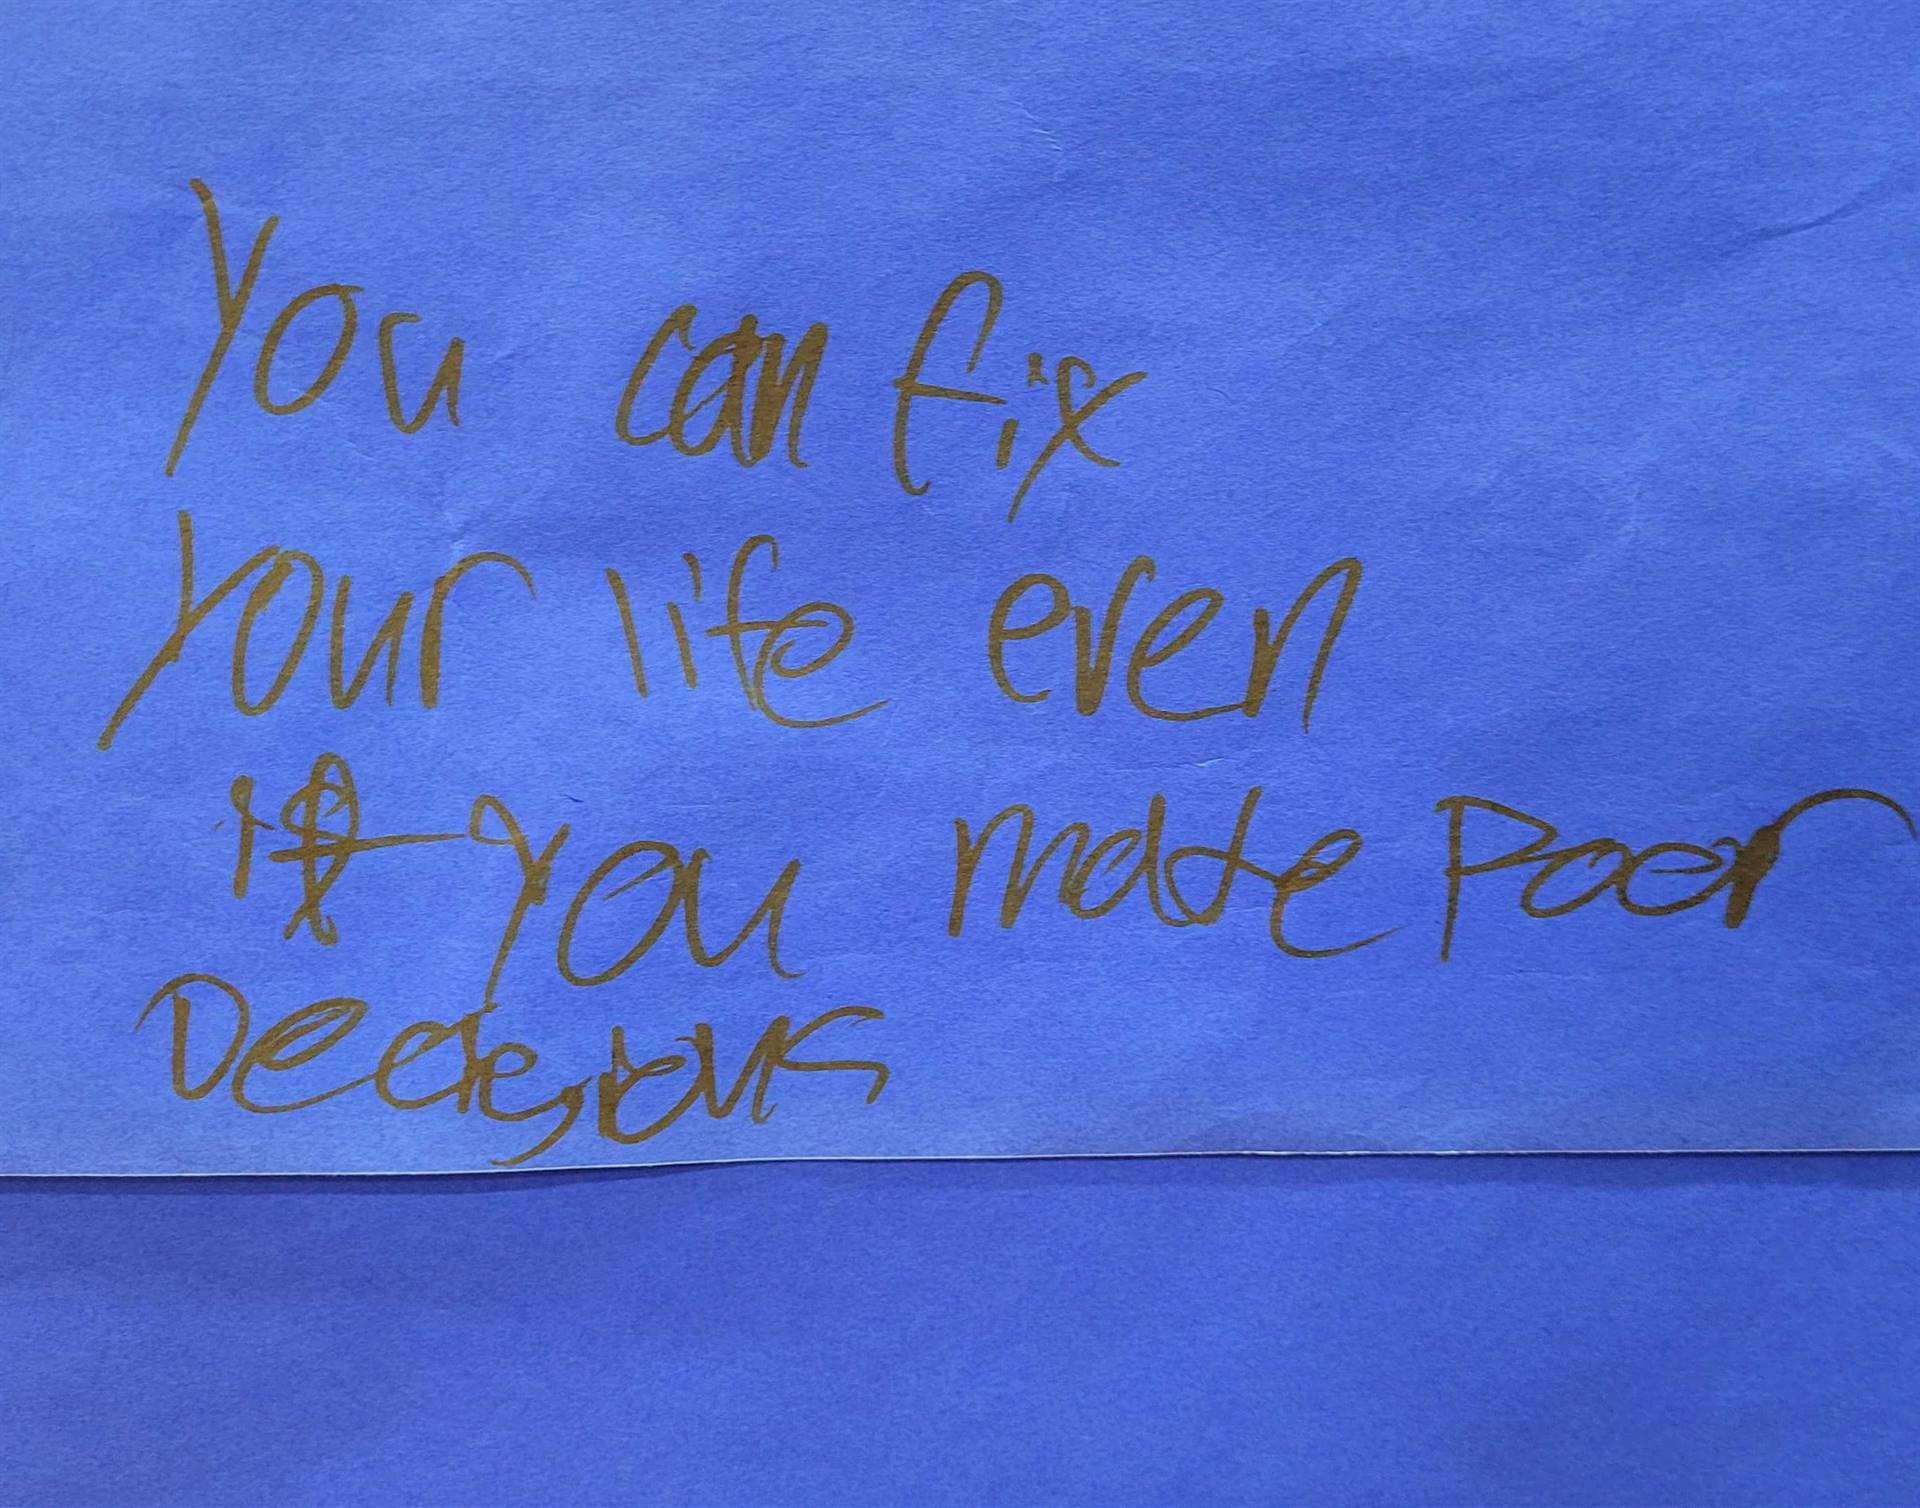 You can fix
your life even
if you made Poor
Decisions